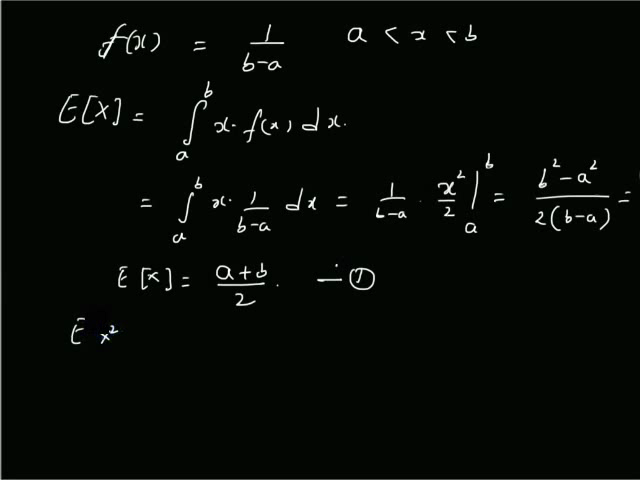 f(x) = 1/(b-a) a < x < b
E[X] = ∫_a^b x · f(x) dx.
= ∫_a^b x · 1/(b-a) dx = 1/(b-a) · x²/2 |_a^b = (b² - a²)/(2(b-a)) =
E[x] = (a+b)/2 . — ①
E x²